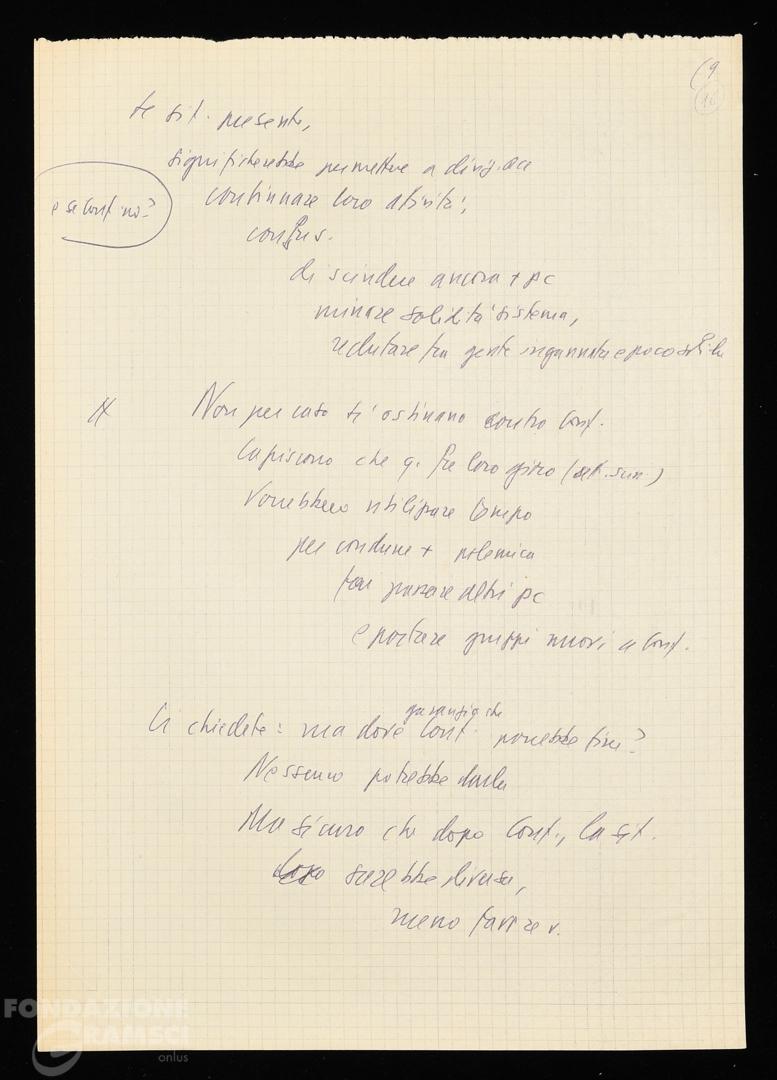 (9
(10)
te sit. presente,
significherebbe permettere a dirig.
e se conf. no?
continuare loro attività;
di scindere ancora + pc
minare solidità sistema,
reclutare tra gente ingannata e poco
Non per caso si ostinano contro Conf.
Capiscono che q. loro gioco
Vorrebbero utilizzare tempo
per condurre + polemica
far passare altri pc
e portare gruppi nuovi a Conf.
garanzia che
Ci chiedete: ma dove Conf. porrebbe fine?
Nessuno potrebbe darla
Ma sicuro che dopo Conf., la sit.
sarebbe diversa,
meno
FONDAZIONE
GRAMSCI
onlus